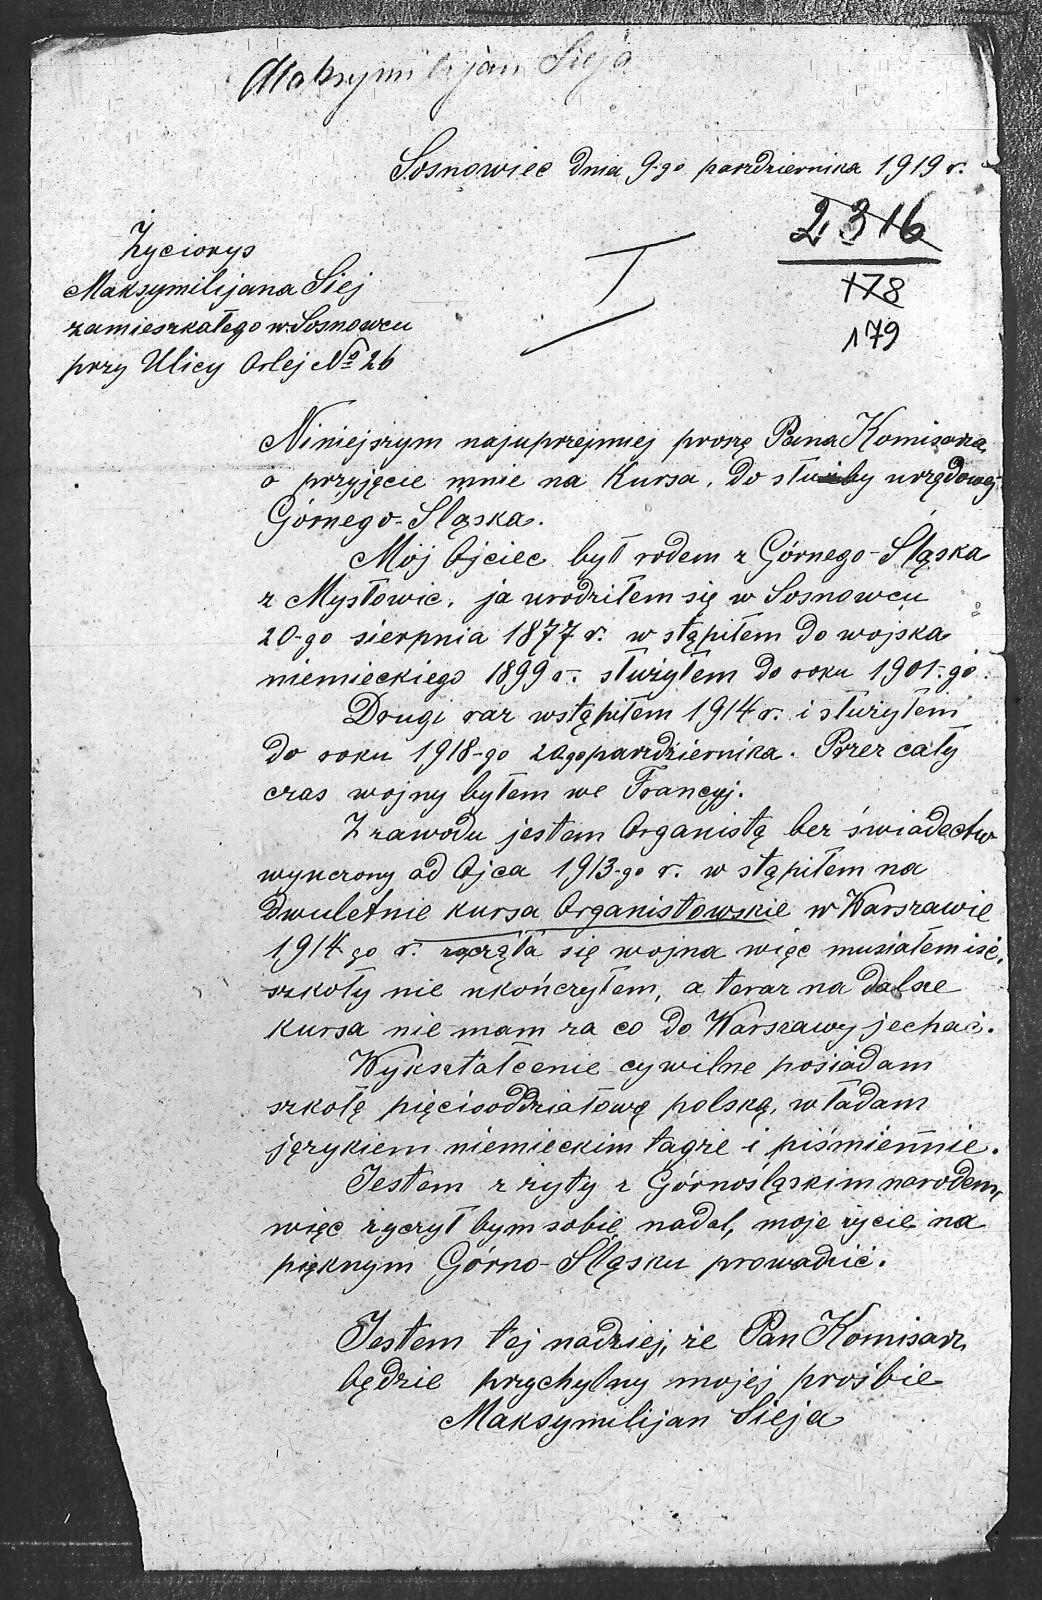 Maksymilijan Sieja
Sosnowiec dnia 9-go pazdziernika 1919 r.
2316
178
179
I
Życiorys
Maksymilijana Siej
zamieszkałego w Sosnowcu
przy Ulicy Orlej № 26
Niniejszym najuprzejmiej proszę Pana Komisarza
o przyjęcie mnie na Kursa, do służby urzędowej
Górnego-Śląska.
Mój Ojciec był rodem z Górnego-Śląska
z Mysłowic, ja urodziłem się w Sosnowcu
20-go sierpnia 1877 r. wstąpiłem do wojska
niemieckiego 1899 r. służyłem do roku 1901-go.
Drugi raz wstąpiłem 1914 r. i służyłem
do roku 1918-go 20go pazdziernika. Przez cały
czas wojny byłem we Francyj.
Z zawodu jestem Organistą bez świadectw
wyuczony od Ojca 1913-go r. wstąpiłem na
dwuletnie kursa Organistowskie w Warszawie
1914 go r. zaczęła się wojna więc musiałem iść,
szkoły nie ukończyłem, a teraz na dalsze
kursa nie mam za co do Warszawy jechać.
Wykształcenie cywilne posiadam
szkołę pięcioddziałowę polską, władam
językiem niemieckim także i piśmiennie.
Jestem zżyty z Górnośląskim narodem,
więc życzył bym sobie nadal, moje życie na
pięknym Górno-Śląsku prowadzić.
Jestem tej nadziej, że Pan Komisarz
będzie przychylny mojej prośbie
Maksymilijan Sieja